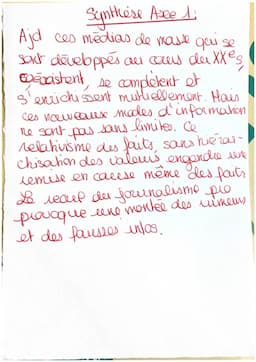 Synthèse Axe 1:
Ajd ces médias de masse qui se
sont développés au cours du XXe s,
coexistent, se complètent et
s'enrichissent mutuellement. Mais
ces nouveaux modes d'information
ne sont pas sans limites. Ce
relativisme des faits, sans hiérar-
chisation des valeurs, engendre une
remise en cause même des faits
Le recul du journalisme pro
provoque une montée des rumeurs
et des fausses infos.